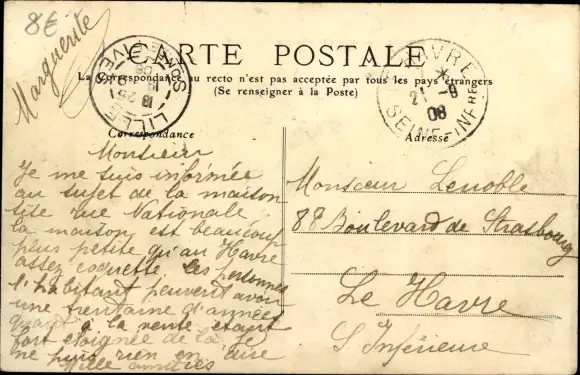 8€
Marguerite
CARTE POSTALE
La Correspondance au recto n'est pas acceptée par tous les pays étrangers
(Se renseigner à la Poste)
Correspondance
Adresse
LILLE
HAVRE
21 -9
08
SEINE-INFRE
Monsieur
Je me suis informée
au sujet de la maison
site rue Nationale
la maison est beaucoup
plus petite qu'au Havre
assez coquette, les personnes
l'habitant peuvent avoir
une trentaine d'années
quant à la vente étant
fort éloignée de là, je
ne puis rien en dire
Mille amitiés
Monsieur Lenoble
88 Boulevard de Strasbourg
Le Havre
S. Inférieure